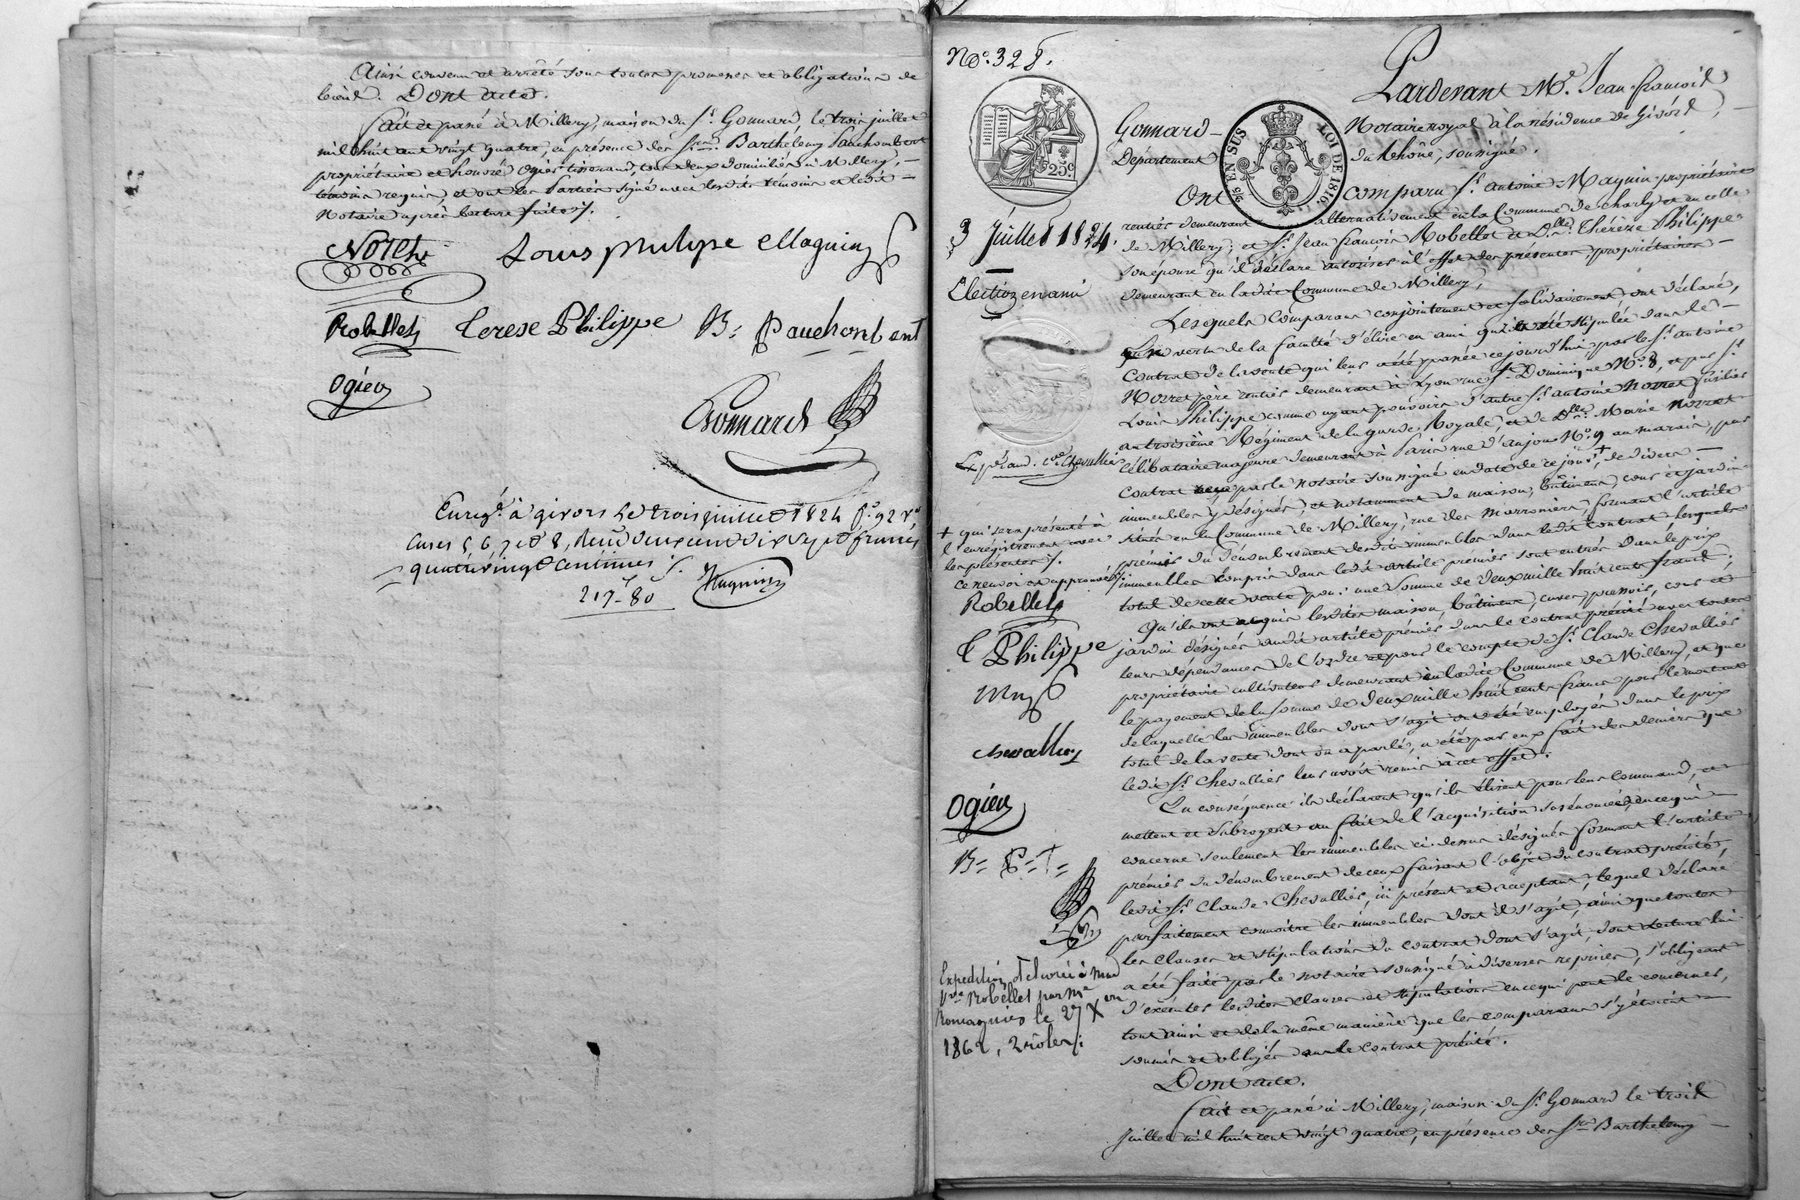 Ainsi convenu et arrêté sous toutes promesses et obligations de
biens. Dont acte.
fait et passé à Millery, maison du Sr. Gonnard, le trois juillet
mil huit cent vingt quatre, en présence des Srs. Barthélemy Pauchont
propriétaire et honoré Ogier tisserand, tous deux domiciliés à Millery,
témoins requis, et ont les Parties signé avec lesdits témoins et ledit
Notaire après lecture faite ./.
Noret
Louis philipe Maguin
Robellet
Terese Philippe
B: Pauchont
Ogier
Gonnard
Enregé. à givors le trois juillet 1824 fo. 92 Vo.
Cases 5, 6, 7 et 8, Reçu deux cent dix sept francs
quatrevingt centimes ./.
217-80
No. 328.
Gonnard
Département
25c
96 EN SUS
LOI DE 1816.
Pardevant Me. Jean françois
Notaire royal à la résidence de Givors,
du Rhône, soussigné.
Ont comparu Sr. antoine Maguin propriétaire
rentier demeurant alternativement en la Commune de charly et en celle
de Millery; et Sr. Jean françois Robellet et Dlle. Thérèze Philippe
son épouse qu'il déclare autoriser à l'effet des présentes, propriétaires
demeurant en ladite Commune de Millery,
3 Juillet 1824.
Election en ami
Lesquels comparans conjointement et solidairement ont déclaré,
en vertu de la faculté d'élire en ami qui a été stipulée dans le
Contrat de la vente qui leur a été passée cejourd'hui par le Sr. antoine
Norret père rentier demeurant à Lyon rue St. Dominique No. 8, et par Sr.
Louis Philippe comme ayant pouvoir d'autre Sr. antoine Norret fusilier
au troisième Régiment de la garde Royale, et de Dlle. Marie Norret
Célibataire majeure demeurant à Paris rue d'anjou No. 9 au marais, par
contrat reçu par le notaire soussigné en date de ce jour +, de divers
immeubles y désignés, et notamment de maison, bâtiments, cour et jardin
situés en la Commune de Millery, rue des Marronniers, formant l'article
premier du dénombrement desdits immeubles dans ledit contrat, lesquels
immeubles compris dans ledit article premier sont entrés dans le prix
total de cette vente pour une somme de deux mille huit cents francs;
+ qui sera présenté à
l'enregistrement avec
les présentes ./.
ce renvoi est approuvé
Robellet
T Philippe
Mag
chevallier
Ogier
B= P=T=
Qu'ils ont acquis lesdites maison, bâtiments, cuves, pressoir, cour et
jardin désignés audit article premier dans le contrat précité avec toutes
leurs dépendances de l'ordre et pour le compte de Sr. Claude Chevallier
propriétaire cultivateur demeurant en ladite Commune de Millery, et que
le payement de la somme de deux mille huit cents francs pour le montant
de laquelle les immeubles dont s'agit ont été employés dans le prix
total de la vente dont on a parlé, a été par eux fait des deniers que
ledit Sr. Chevallier leur avoit remis à cet effet.
En conséquence ils déclarent qu'ils élisent pour leur Command, et
mettent et subrogent au fait de l'acquisition susénoncée, en ce qui
concerne seulement les immeubles ci-dessus désignés formant l'article
premier du dénombrement de ceux faisant l'objet du contrat précité,
ledit Sr. Claude Chevallier, ici présent et acceptant, lequel déclare
parfaitement connoître les immeubles dont il s'agit, ainsi que toutes
les clauses et stipulations du contrat dont s'agit, dont lecture lui
a été faite par le notaire soussigné à diverses reprises, s'obligeant
d'exécuter lesdites clauses et stipulations en ce qui peut le concerner,
tout ainsi et de la même manière que les comparans s'y étoient
soumis et obligés dans le contrat précité.
Expédition délivrée à Mme
Vve. Robellet par Me
le 27 Xbre
1862, 2 rôles ./.
Dont acte.
fait et passé à Millery, maison du Sr. Gonnard le trois
Juillet mil huit cent vingt quatre, en présence des Srs. Barthelemy